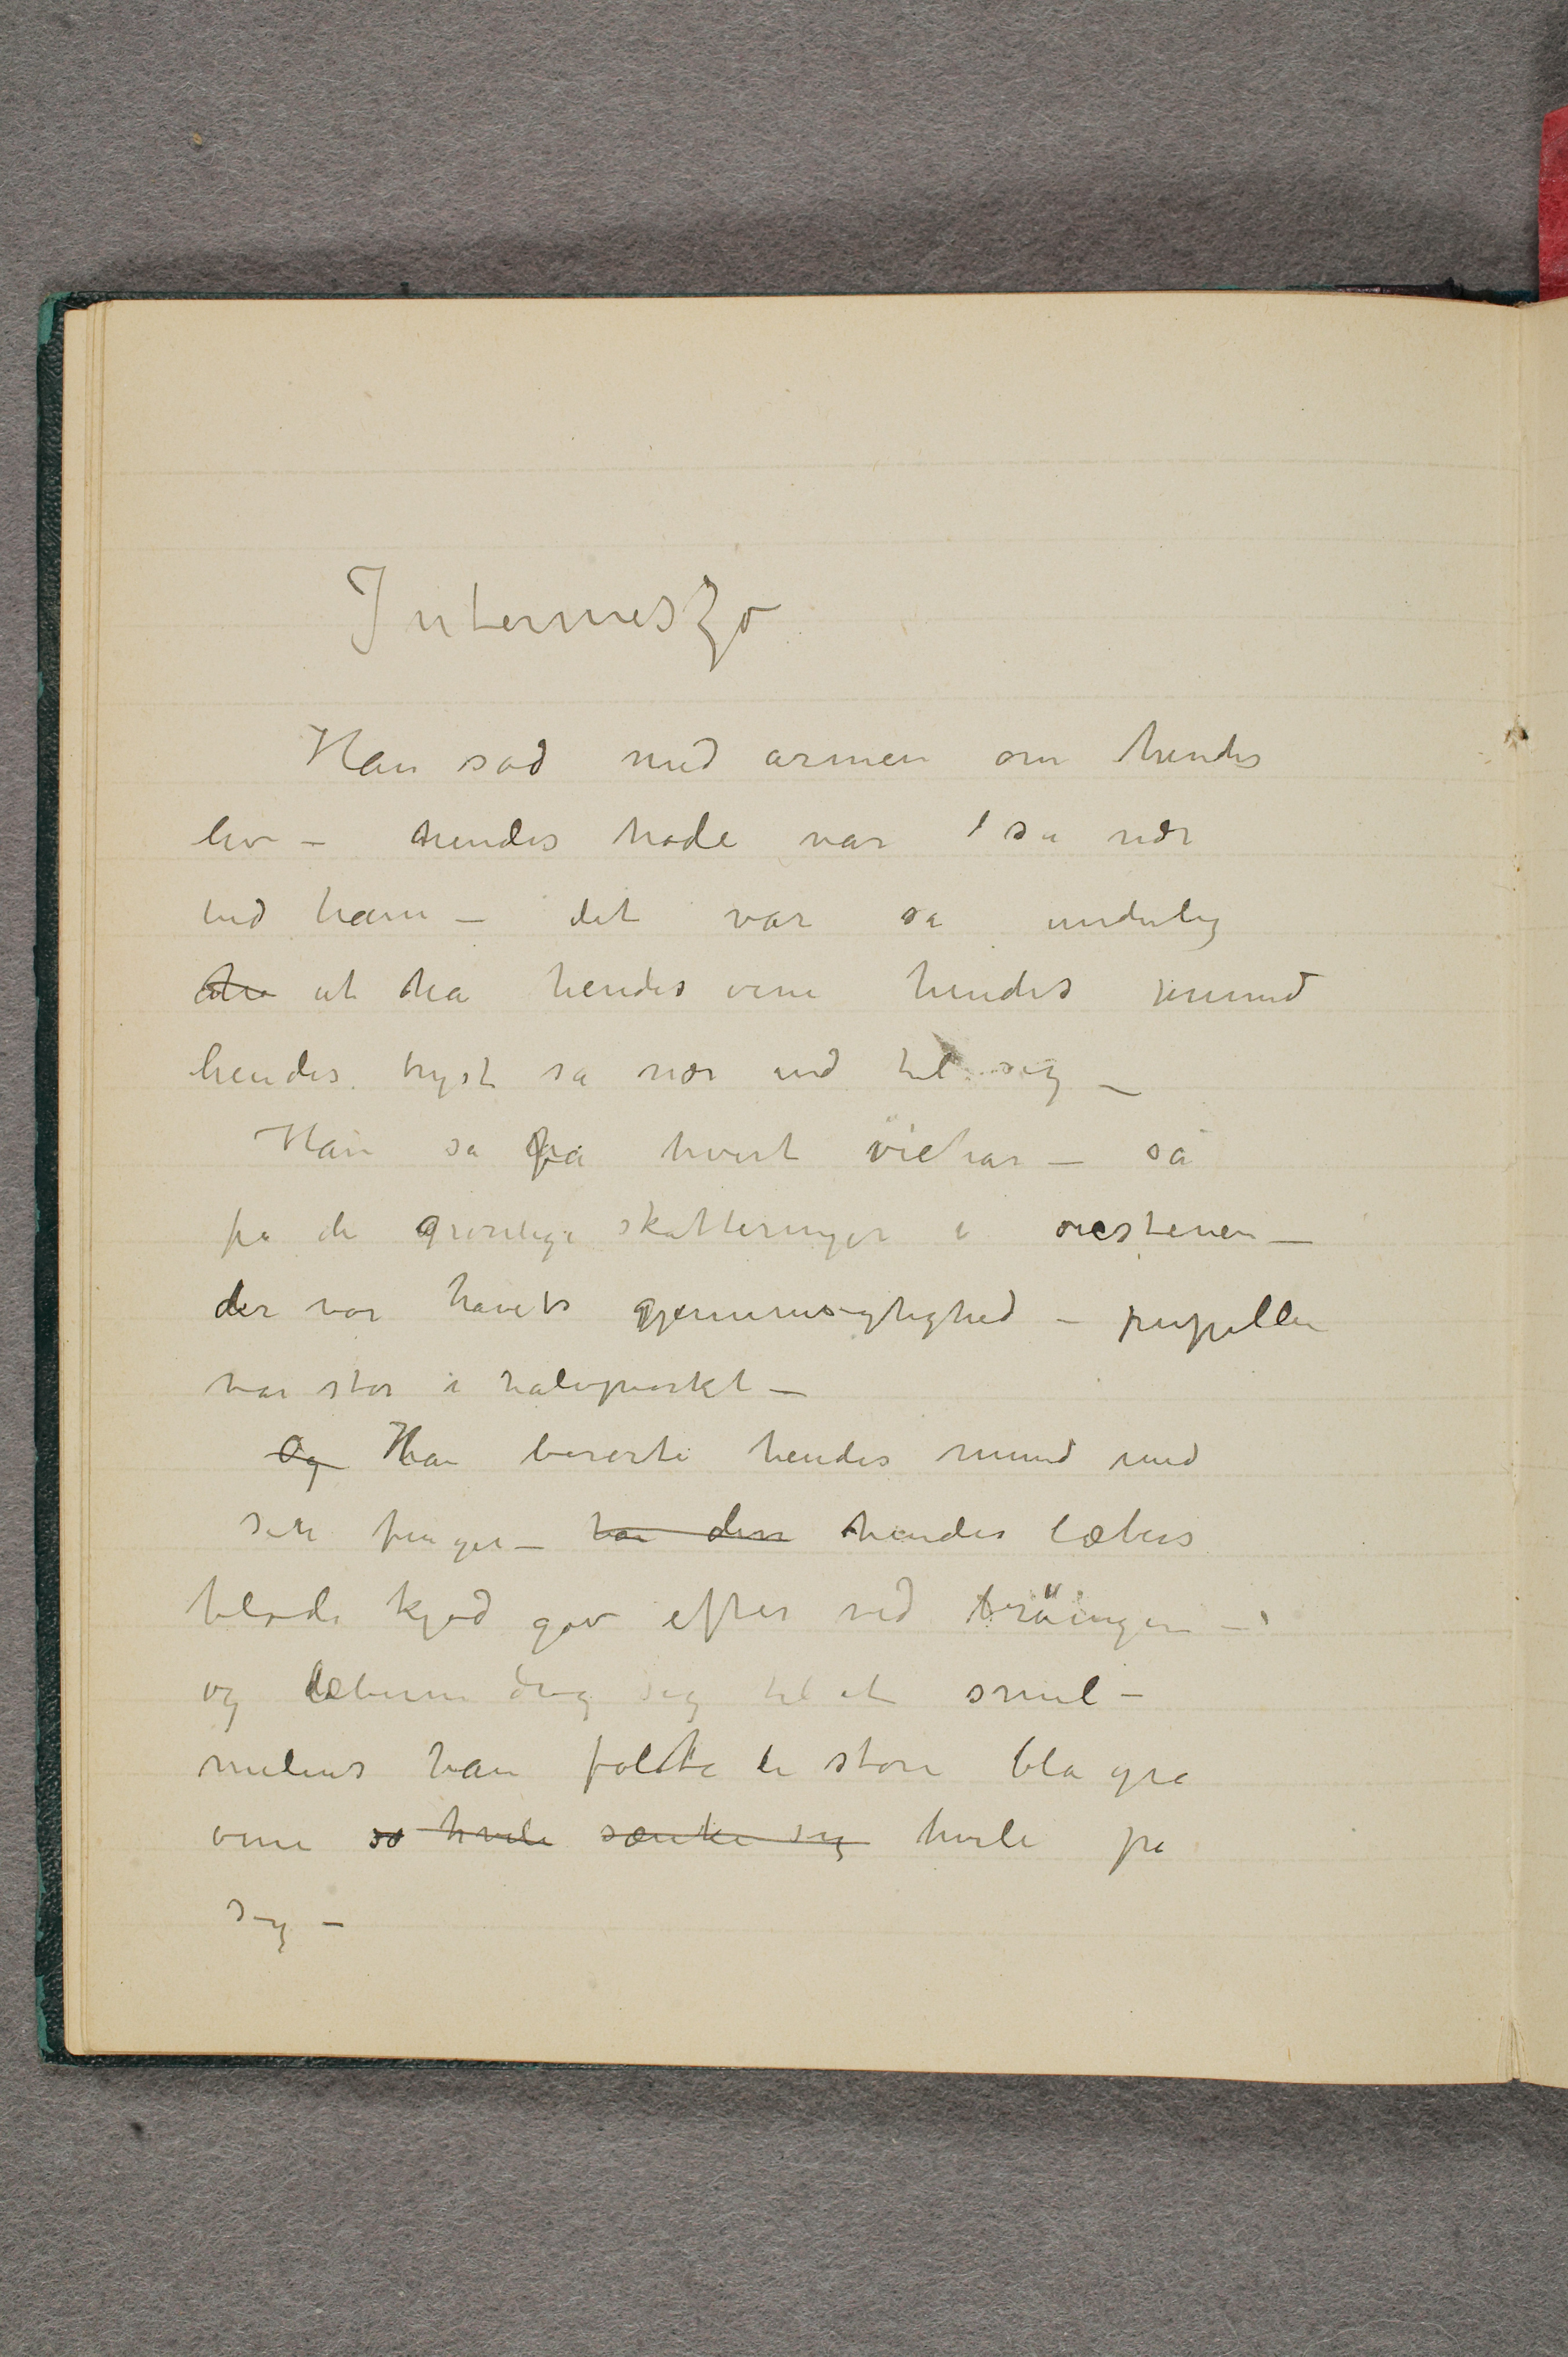 Intermeszo
Han sad med armen om hendes
liv – hendes hode var så nær
ind ham – det var sa underlig
at ha hendes øine hendes mund
hendes bryst sa nær ind til sig –
Han sa på hvert øiehar – så
på de grønlige skatteringer i øiestenen –
der var havets gjennemsigtighed – pupillen
var stor i halvmørkt –
Og Han berørte hendes mund med
sin finger – han den hendes læbers
bløde kjød gav efter ved
og læberne drog sig til et smil –
melens han følte de store bla gra
øine så hvile sænke sig hvile på
sig –